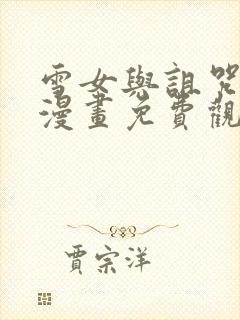 雪女與詛咒
漫畫免費觀
賈宗洋